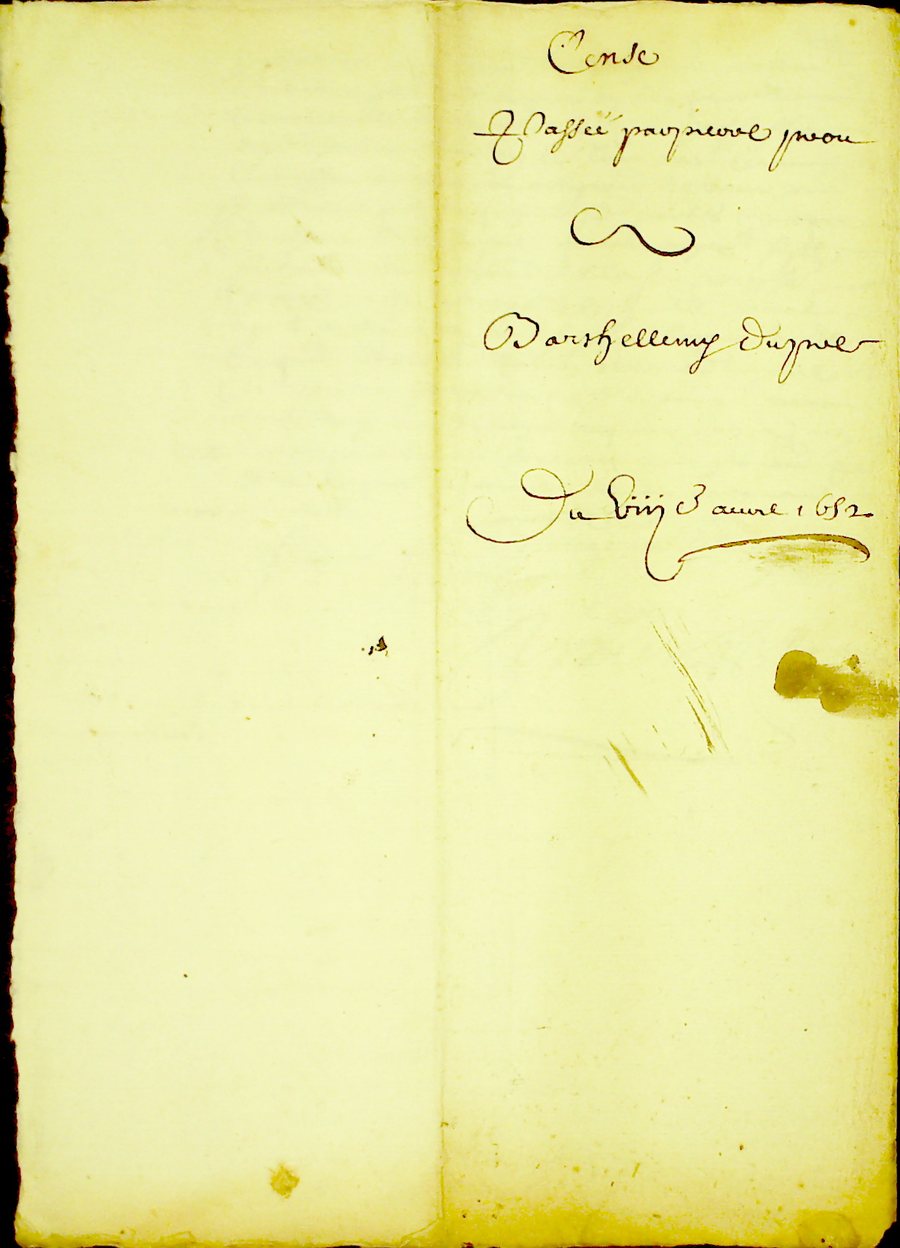 Cense
Passée par pierre preou
Barthellemy Duprel
Du Viij e avvril 1652